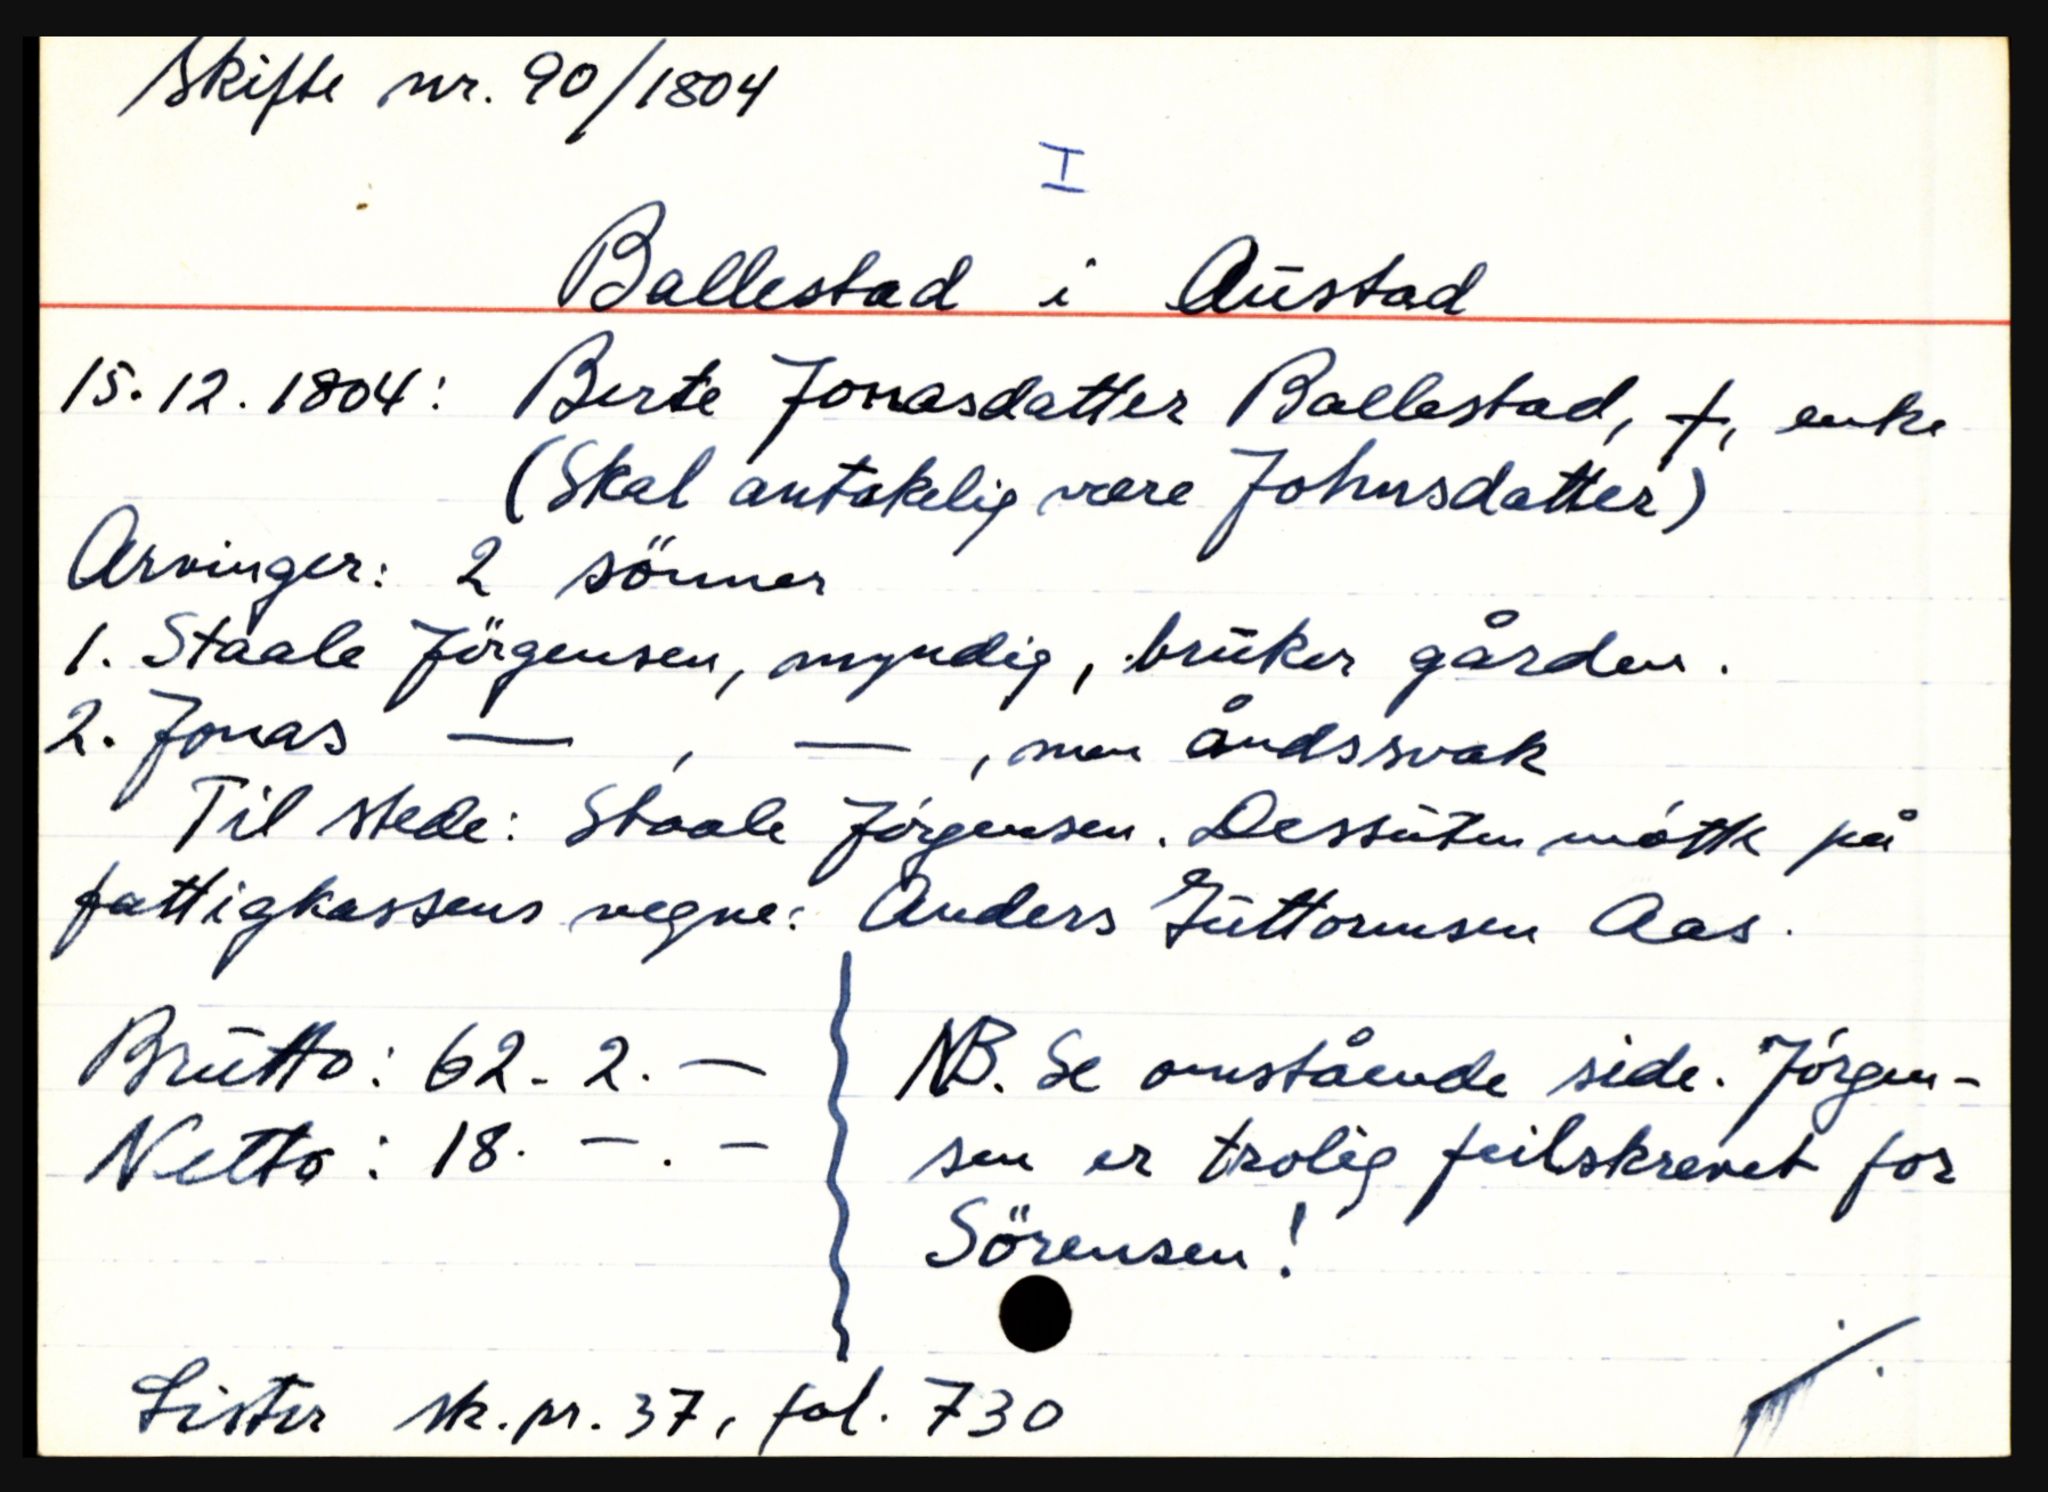 Skifte nr. 90/1804
I
Ballestad i Austad
15.12.1804: Berte Jonasdatter Ballestad, †, enke
(Skal antakelig være Johnsdatter)
Arvinger: 2 sönner
1. Staale Jörgensen, myndig, bruker gården.
2. Jonas — , — , men åndssvak
Til stede: Staale Jörgensen. Dessuten mötte på
fattigkassens vegne: Anders Guttormsen Aas.
Brutto: 62. 2. —
Netto: 18. — . —
NB. Se omstående side. Jörgen-
sen er trolig feilskrevet for
Sörensen!
Lister sk.pr. 37, fol. 730
./.